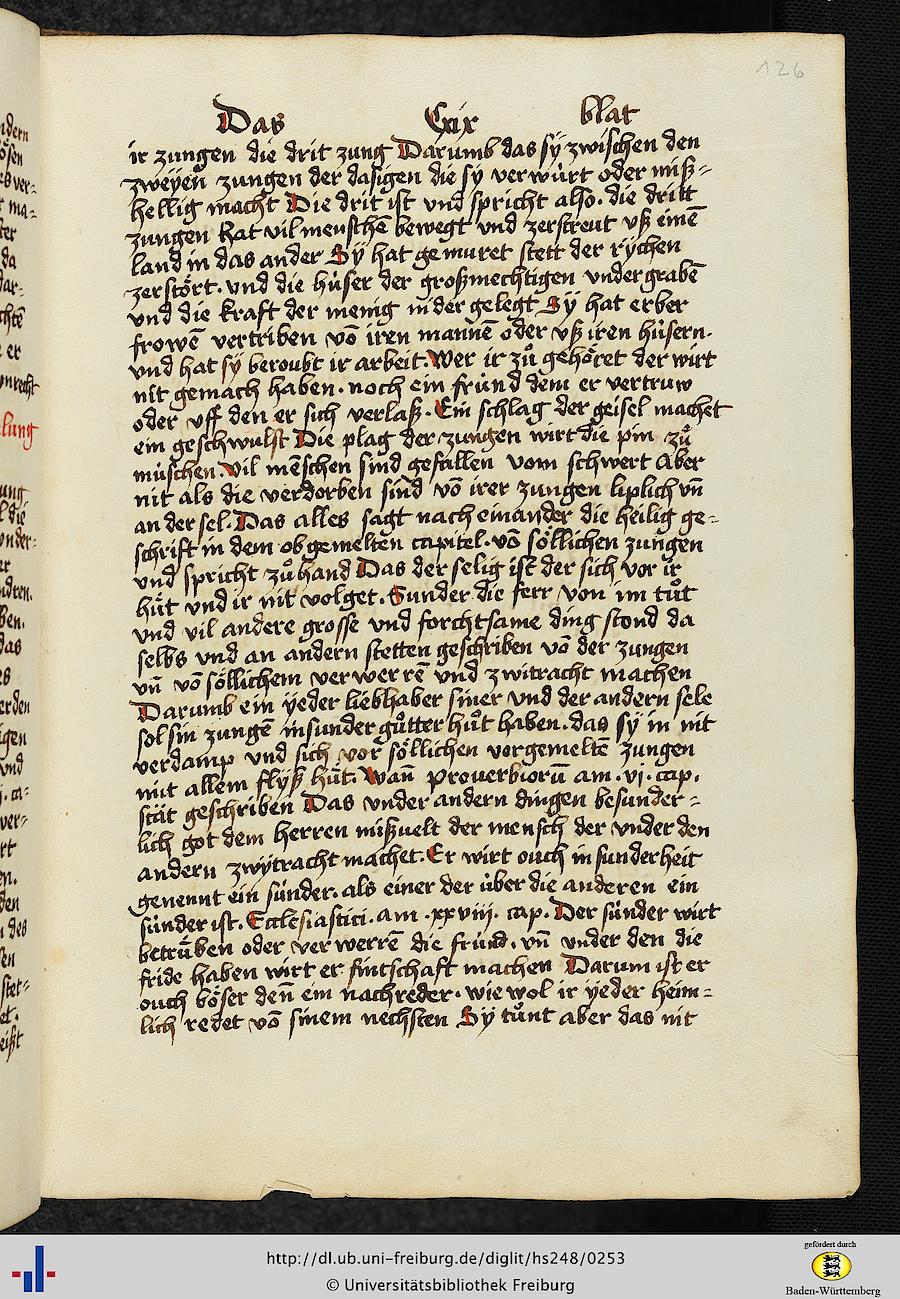 126
Das Cxix blat
ir zungen die drit zung Darumb das sÿ zwischen den
zweÿen zungen der dasigen die sy verwùrt oder miß⸗
hellig macht Die drit ist vnd spricht also. die dritt
zungen hat vil menschē bewegt vnd zerstreut vß einē
land in das ander Sÿ hat gemuret stett der rÿchen
zerstört. vnd die hùser der großmechtigen vndergrabē
vnd die kraft der menig nider gelegt Sÿ hat erber
frowē vertriben vō iren mannē oder vß iren hùsern.
vnd hat sy beroubt ir arbeit. Wer ir zů gehöret der wirt
nit gemach haben. noch ein frùnd dem er vertruw
oder vff den er sich verlaß. Ein schlag der geisel machet
ein geschwulst Die plag der zungen wirt die pin zů
mùschen. Vil mēschen sind gefallen vom schwert Aber
nit als die verdorben sind vō irer zungen liplich vn̄
an der sel. Das alles sagt nach einander die heilig ge⸗
schrift in dem obgemelten capitel. vō söllichen zungen
vnd spricht zů hand Das der selig ist der sich vor ir
hùt vnd ir nit volget. Sunder die ferr von im tůt
vnd vil andere grosse vnd forchtsame ding stond da
selbs vnd an andern stetten geschriben vō der zungen
vn̄ vō söllichem verwerrē vnd zwitracht machen
Darumb ein ÿeder liebhaber siner vnd der andern sele
sol sin zungē insunder gůtter hůt haben. das sy in nit
verdamp vnd sich vor söllichen vorgemeltē zungen
mit allem flÿß hùt. Wan̄ prouerbiorū am .vj. cap.
stät geschriben Das vnder andern dingen besunder⸗
lich got dem herren mißuelt der mensch der vnder den
andern zwÿtracht machet. Er wirt ouch in sunderheit
genennt ein sùnder. als einer der ùber die anderen ein
sùnder ist. Ecclesiastici. am .xxviii. cap. Der sùnder wirt
betrùben oder verwerrē die frùnd. vn̄ vnder den die
fride haben wirt er fintschaft machen Darum ist er
ouch böser den̄ ein nachreder. wie wol ir ÿeder heim⸗
lich redet vō sinem nechsten Sÿ tùnt aber das nit
http://dl.ub.uni-freiburg.de/diglit/hs248/0253
© Universitätsbibliothek Freiburg
gefördert durch
Baden-Württemberg